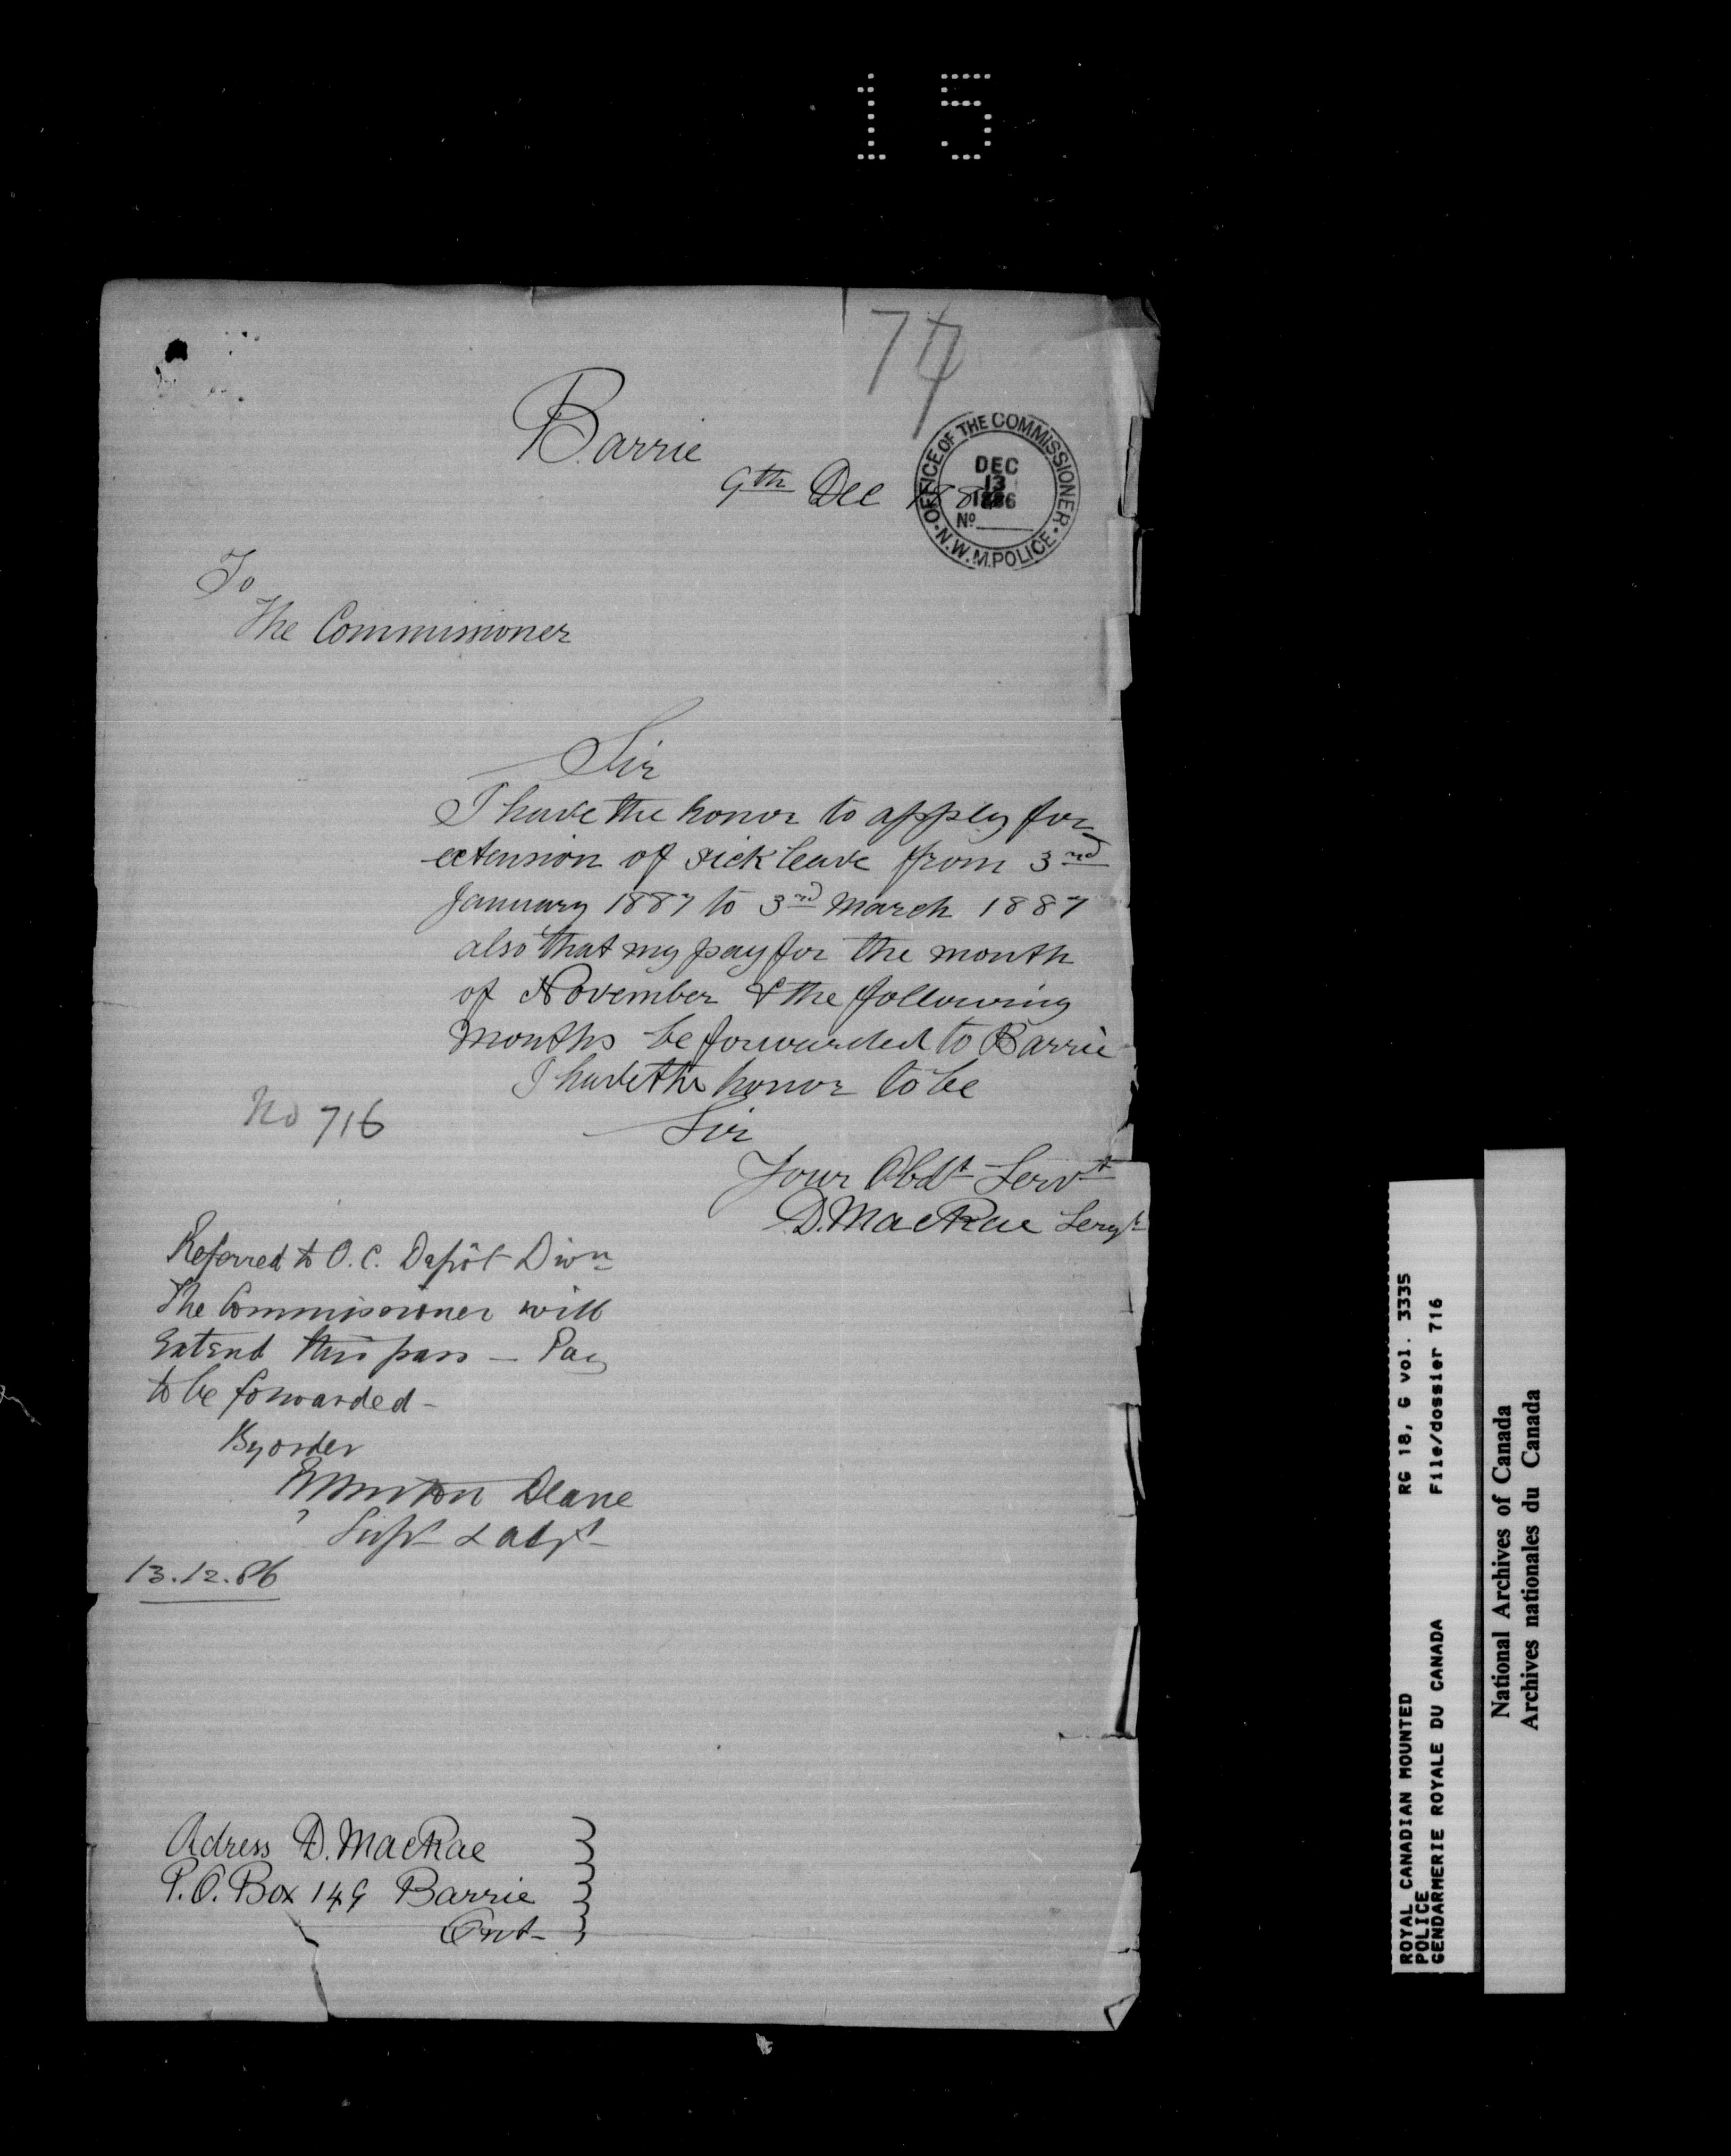 15
77
Barrie
9th Dec 1886
OFFICE OF THE COMMISSIONER
DEC
13
1886
No
N.W.M. POLICE
To
The Commissioner
Sir
I have the honor to apply for
extension of sick leave from 3rd
January 1887 to 3rd March 1887
also that my pay for the month
of November & the following
months be forwarded to Barrie
I have the honor to be
Sir
Your Obdt Servt
D. MacRae Sergt
No 716
Referred to O.C. Depôt Divn
The Commissioner will
extend this pass - Pay
to be forwarded -
By order
Deane
Supt & Adjt
13.12.86
Adress D. MacRae
P.O. Box 149 Barrie
Ont-
ROYAL CANADIAN MOUNTED RG 18, G vol. 3335
POLICE
GENDARMERIE ROYALE DU CANADA File/dossier 716
National Archives of Canada
Archives nationales du Canada